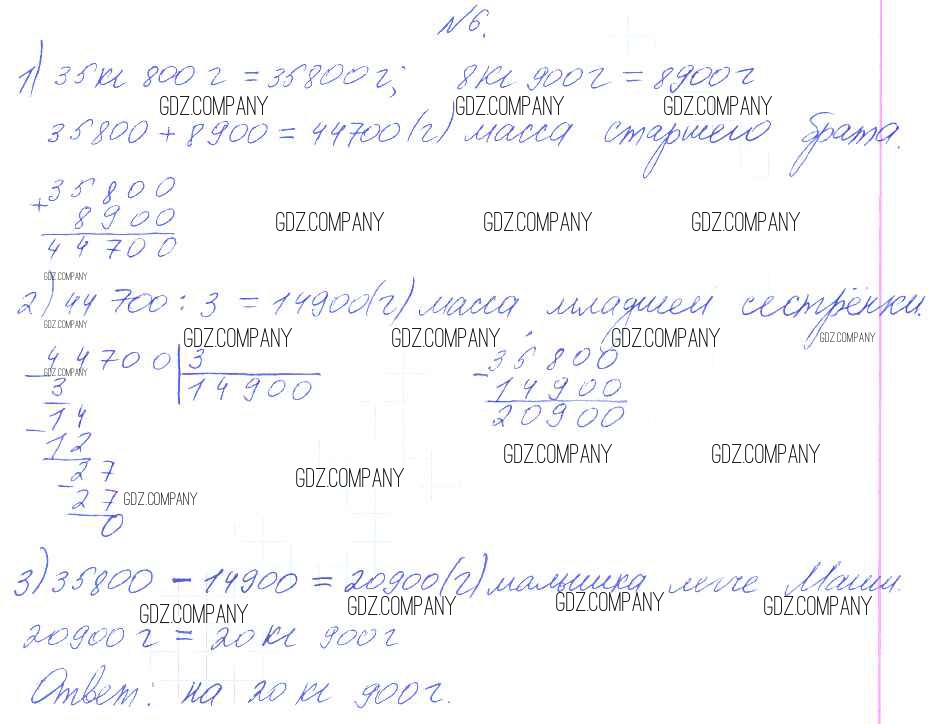 №6.
1) 35кг 800г = 35800г; 8кг 900г = 8900г
GDZ.COMPANY GDZ.COMPANY GDZ.COMPANY
35800 + 8900 = 44700 (г) масса старшего брата.
+35800
8900
44700
GDZ.COMPANY GDZ.COMPANY GDZ.COMPANY
GDZ.COMPANY
2) 44 700 : 3 = 14900 (г) масса младшей сестрёнки.
GDZ.COMPANY
GDZ.COMPANY GDZ.COMPANY GDZ.COMPANY GDZ.COMPANY
-44700 | 3
14900
GDZ.COMPANY
3
-14
12
-27
27
0
-35800
14900
20900
GDZ.COMPANY GDZ.COMPANY
GDZ.COMPANY
GDZ.COMPANY
3) 35800 - 14900 = 20900 (г) малышка легче Маши.
GDZ.COMPANY GDZ.COMPANY GDZ.COMPANY GDZ.COMPANY
20900 г = 20 кг 900г
Ответ: на 20 кг 900г.